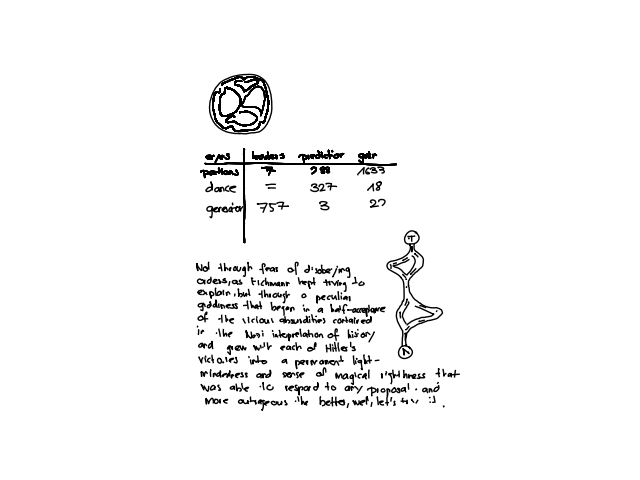 leaders prediction gate
portions 7 288 1633
dance = 327 18
generator 757 3 27
T
Not through fear of disobeying
orders, as Eichmann kept trying to
explain, but through a peculiar
giddiness that began in a half-acceptance
of the vicious absurdities contained
in the Nazi interpretation of history
and grew with each of Hitler's
victories into a permanent light-
mindedness and sense of magical rightness that
was able to respond to any proposal, and
more outrageous the better, well, let's try it.